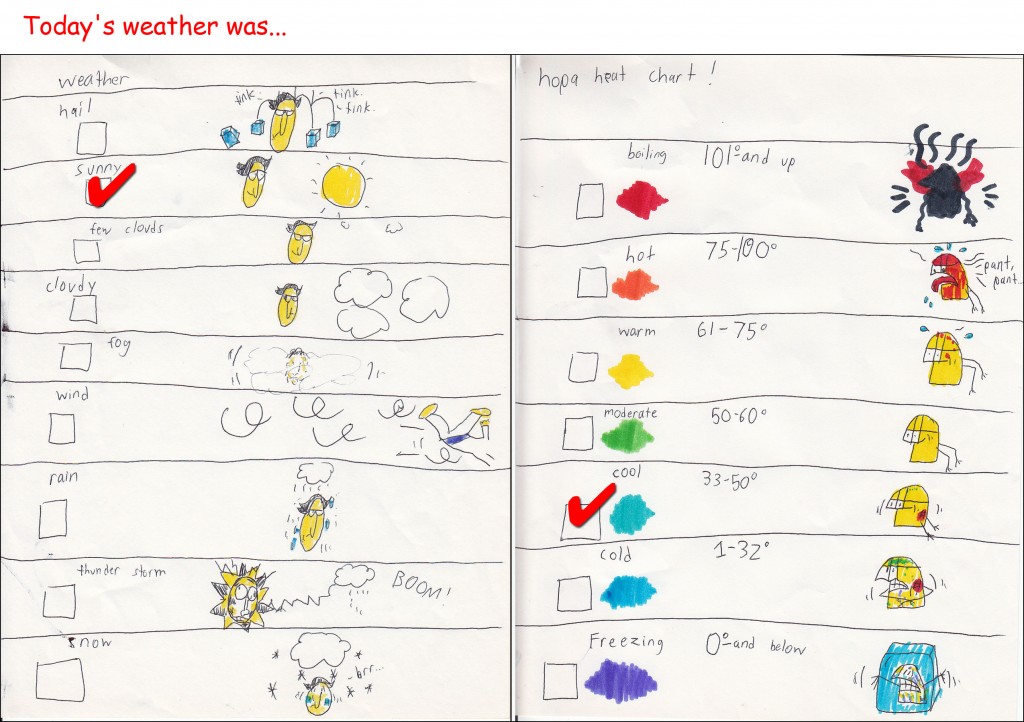 Today's weather was...
weather
hail
tink.
tink.
tink.
sunny
few clouds
cloudy
fog
wind
rain
thunder storm
BOOM!
snow
brr...
hopa heat chart!
boiling 101° and up
hot 75-100°
pant,
pant...
warm 61-75°
moderate 50-60°
cool 33-50°
cold 1-32°
Freezing 0° and below